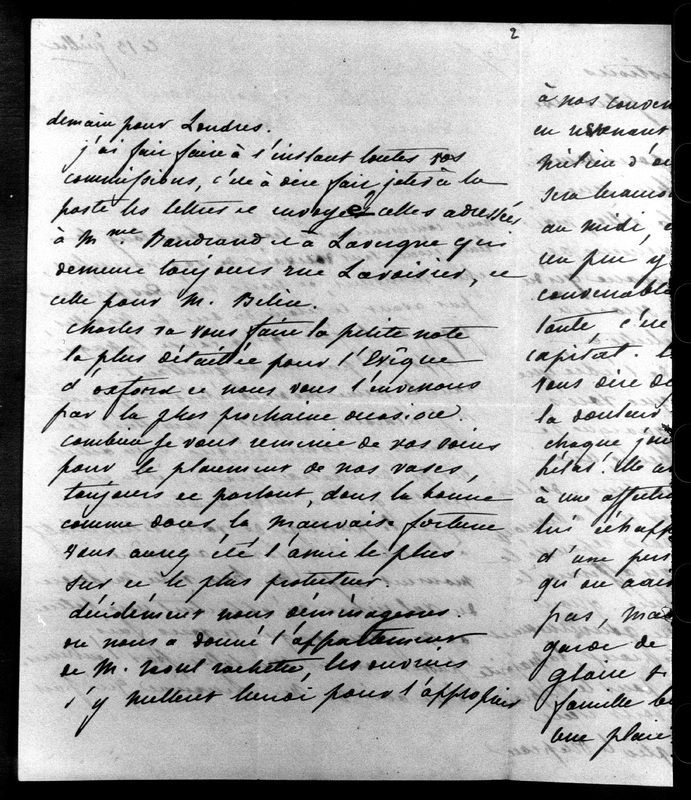 2
demain pour Londres.
j'ai fait faire à l'instant toutes vos
commissions, c'est à dire fait jeter à la
poste les lettres et envoyer celles adressées
à Mme. Baudrand et à Lavergne qui
demeure toujours rue Lavoisier, et
celle pour M.
Charles va vous faire la petite note
la plus détaillée pour l'Evêque
d'oxford et nous vous l'enverrons
par la plus prochaine occasion.
combien je vous remercie de vos soins
pour le placement de nos vases,
toujours et partout, dans la bonne
comme dans la mauvaise fortune
vous aurez été l'amie la plus
sur et le plus protecteur.
décidément nous déménageons.
on nous a donné l'appartement
de M. raoul rochette, les ouvriers
s'y mettent lundi pour l'approprier
à nos conven
en revenant
milieu d'
sera
au midi,
un peu, y
convenable
tante, c'est
capital.
vous dire
la douleur
chaque jou
hélas! elle
à une affecti
lui échapp
d'une per
qu'on
pas, mad
garde de
gloire
famille
une plaie